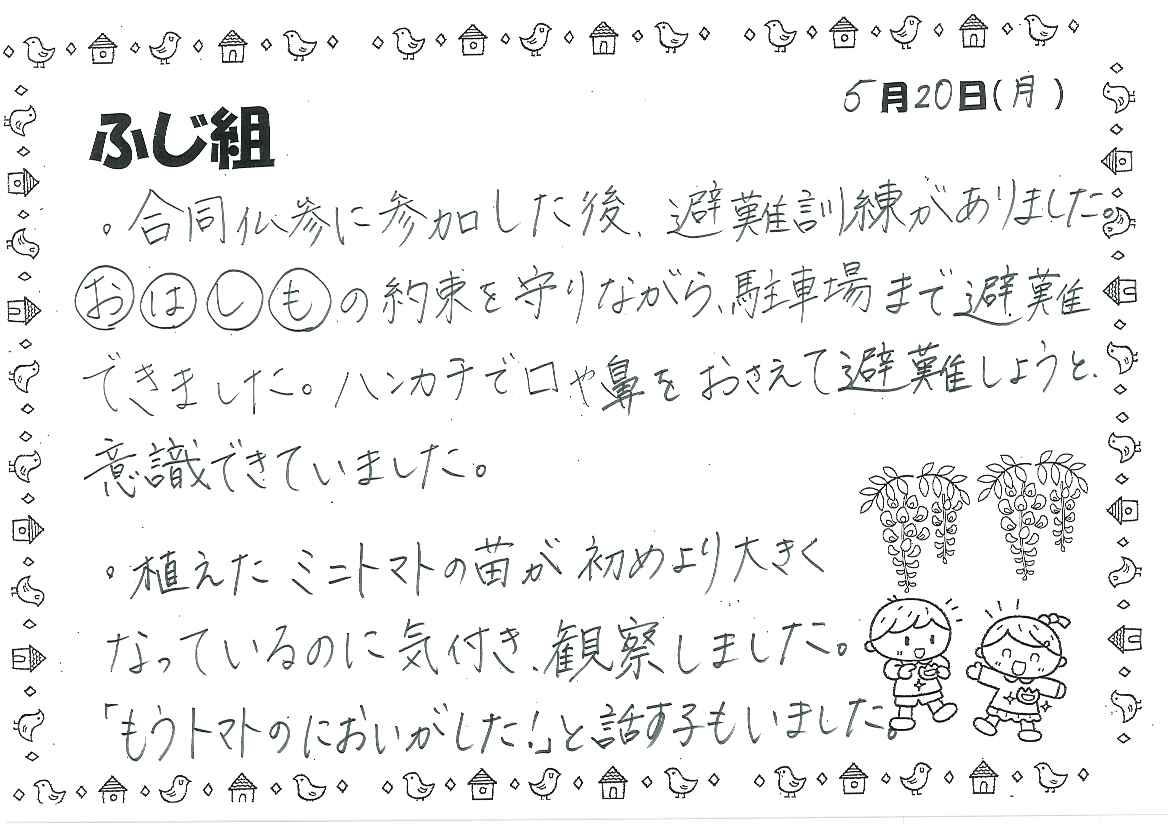 5月20日(月)
ふじ組
。合同仏参に参加した後、避難訓練がありました。
おはしもの約束を守りながら、駐車場まで避難
できました。ハンカチで口や鼻をおさえて避難しようと、
意識できていました。
。植えたミニトマトの苗が初めより大きく
なっているのに気付き、観察しました。
「もうトマトのにおいがした!」と話す子もいました。